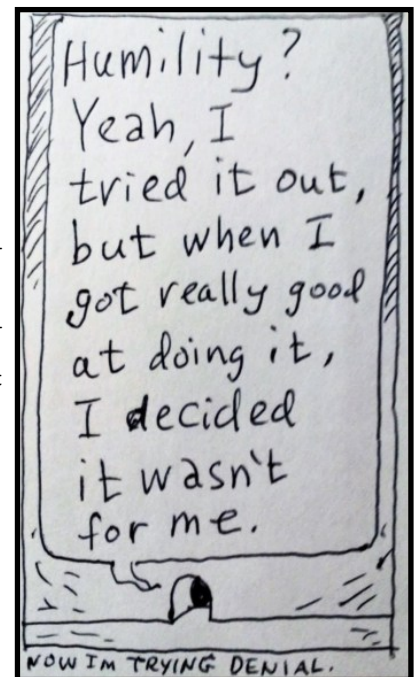 Humility?
Yeah, I
tried it out,
but when I
got really good
at doing it,
I decided
it wasn't
for me.
NOW IM TRYING DENIAL.